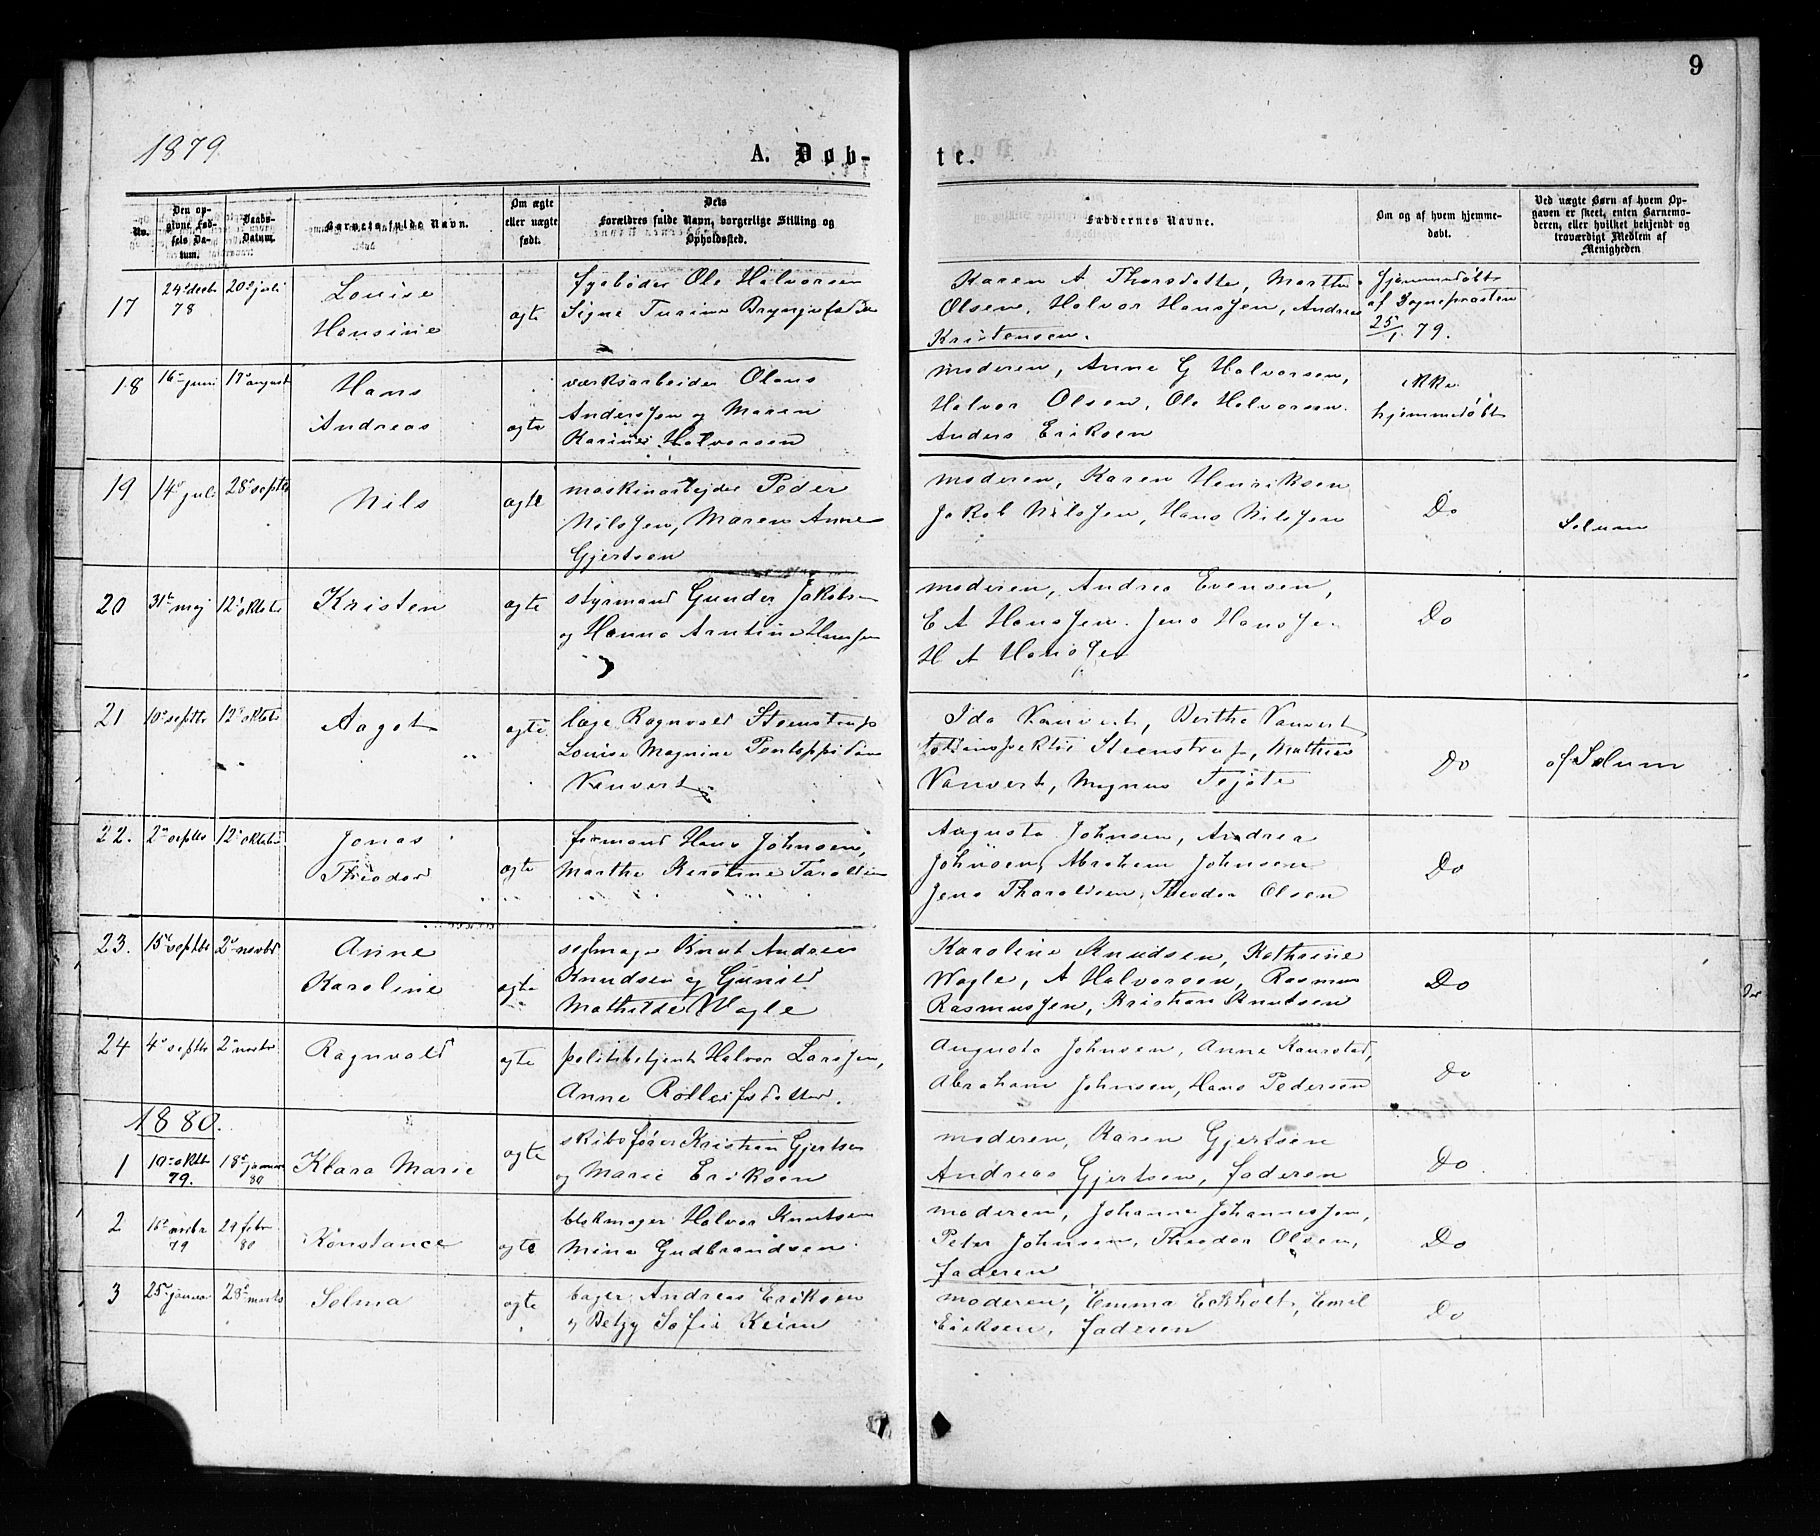 9
1879
A. Døb-
te.
No.
Den op-
givne Fød-
sels Da-
tum.
Daabs-
Datum.
Barnets fulde Navn.
Om ægte
eller uægte
født.
Dets
Forældres fulde Navn, borgerlige Stilling og
Opholdssted.
Faddernes Navne.
Om og af hvem hjemme-
døbt.
Ved uægte Børn af hvem Op-
gaven er skeet, enten Barnemo-
deren, eller hvilket bekjendt og
troværdigt Medlem af
Menigheden
17
24 decbr
78
20 juli
Louise
Hansine
ægte
fyrbøder Ole Halvorsen
Signe Turine
Karen A Thorsdatte, Marthe
Olsen, Halvor Hanssen, Andreas
Kristensen.
Hjemmedøbt
af Sogneprosten
25/1 79.
18
16 juni
17 august
Hans
Andreas
ægte
værksarbeider Olaus
Anderssen og Maren
Karine Halvorsen
moderen, Anne G Halvorsen,
Halvor Olsen, Ole Halvorsen
Anders Eriksen
ikke
hjemmedøbt
19
14 juli
28 septbr
Nils
ægte
maskinarbejder Peder
Nilssen, Maren Anne
Gjertsen
moderen, Karen Henriksen
Jakob Nilssen, Hans Nilssen
Do
Solum
20
31t maj
12 oktobr
Kristen
ægte
styrmand Gunder Jakobsen
og Hanna Arntine Hanssen
moderen, Andrea Evensen,
E A Hanssen. Jens Hanssen
H A Hanssen
Do
21
10 septbr
12 oktobr
Aagot
ægte
læge Ragnvald Steenstrup
Louise Magnine Pontoppidan
Vauvert
Ida Vauvert, Berthe Vauvert
Steenstrup, Mathias
Vauvert, Magnus
Do
af Solum
22.
2 septbr
12 oktobr
Jonas
Theodor
ægte
formand Hans Johnsen,
Marthe Kirstine Taraldsen
Augusta Johnsen, Andrea
Johnsen, Abraham Johnsen
Jens Tharaldsen, Theodor Olsen
Do
23.
15 septbr
2 novbr
Anne
Karoline
ægte
sejlmager Knut Andreas
Knudsen og Gunild
Mathilde Wagle
Karoline Knudsen, Kathrine
Wagle, A Halvorsen, Rasmus
Rasmussen, Kristian Knutsen
Do
24
4 septbr
2 novbr
Ragnvald
ægte
politibetjent Halvor Larssen,
Anne Rolleifsdatter.
Augusta Johnsen, Anne
Abraham Johnsen, Hans Pedersen
Do
1880.
1
19 oktbr
79.
18 januar
80
Klara Marie
ægte
skibsfører Kristian Gjertsen
og Marie Eriksen
moderen, Karen Gjertsen
Andreas Gjertsen, faderen
Do
2
16 novbr
79
29 febr
80
Konstance
ægte
blokmager Halvor Knutsen
Mina Gudbrandsen
moderen, Johanne Johannessen,
Peter Johnsen, Theodor Olsen,
faderen
Do
3
25 januar
28 marts
Selma
ægte
bager Andreas Eriksen
og Betzy Sofie Keim
moderen, Emma Eckholt, Emil
Eriksen, faderen
Do